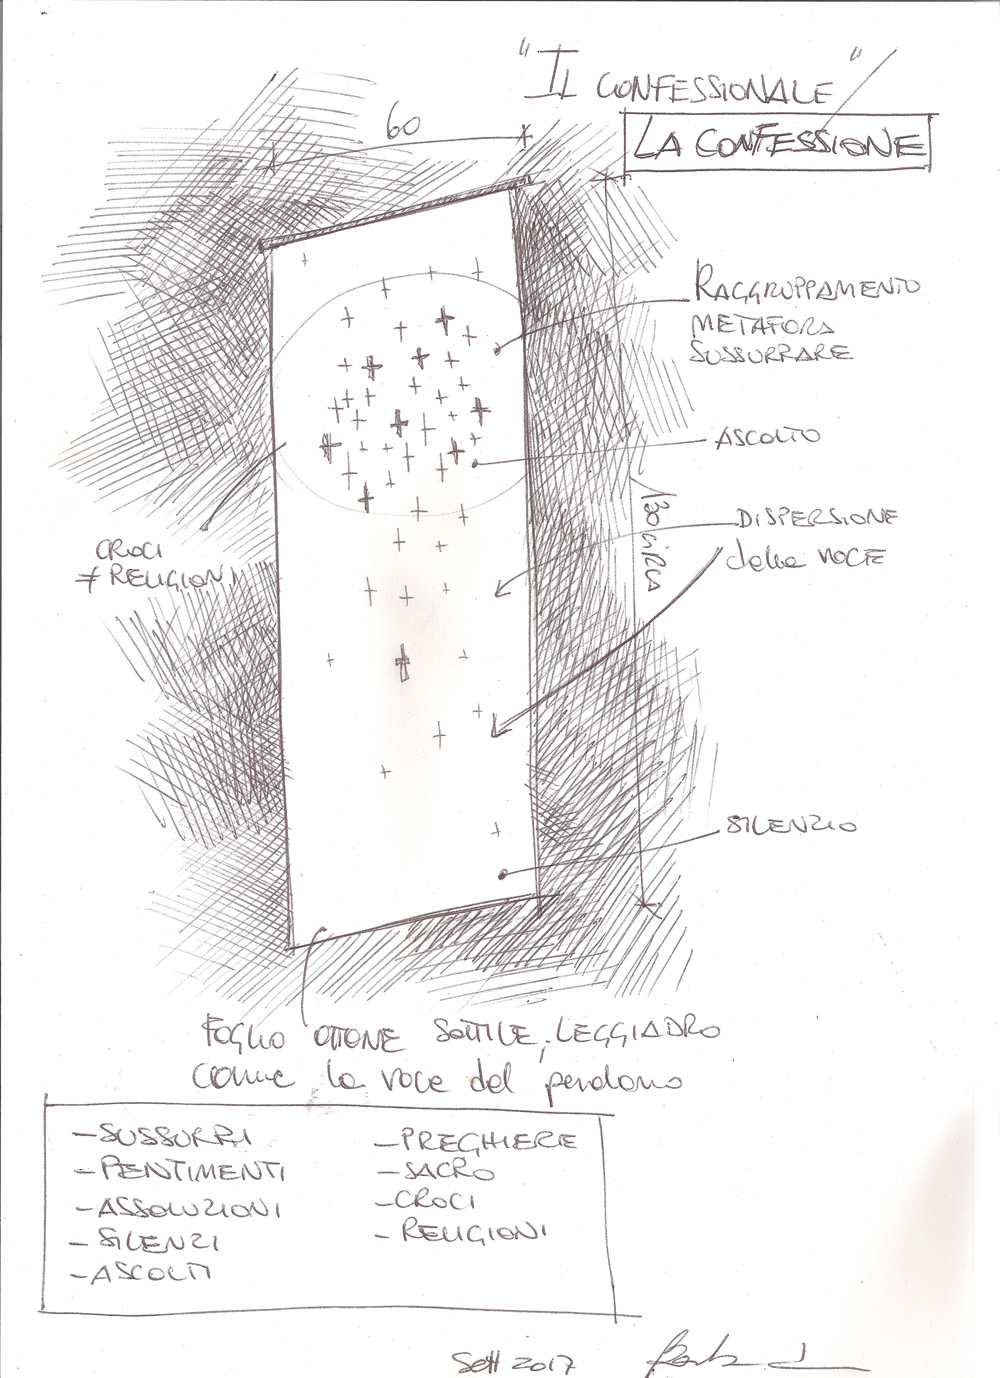 "IL CONFESSIONALE"
LA CONFESSIONE
60
RAGGRUPPAMENTO
METAFORA
SUSSURRARE
ASCOLTO
130 CIRCA
DISPERSIONE
della VOCE
CROCI
≠ RELIGIONI
SILENZIO
FOGLIO OTTONE SOTTILE, LEGGIADRO
come la voce del perdono
- SUSSURRI
- PENTIMENTI
- ASSOLUZIONI
- SILENZI
- ASCOLTI
- PREGHIERE
- SACRO
- CROCI
- RELIGIONI
Sett 2017